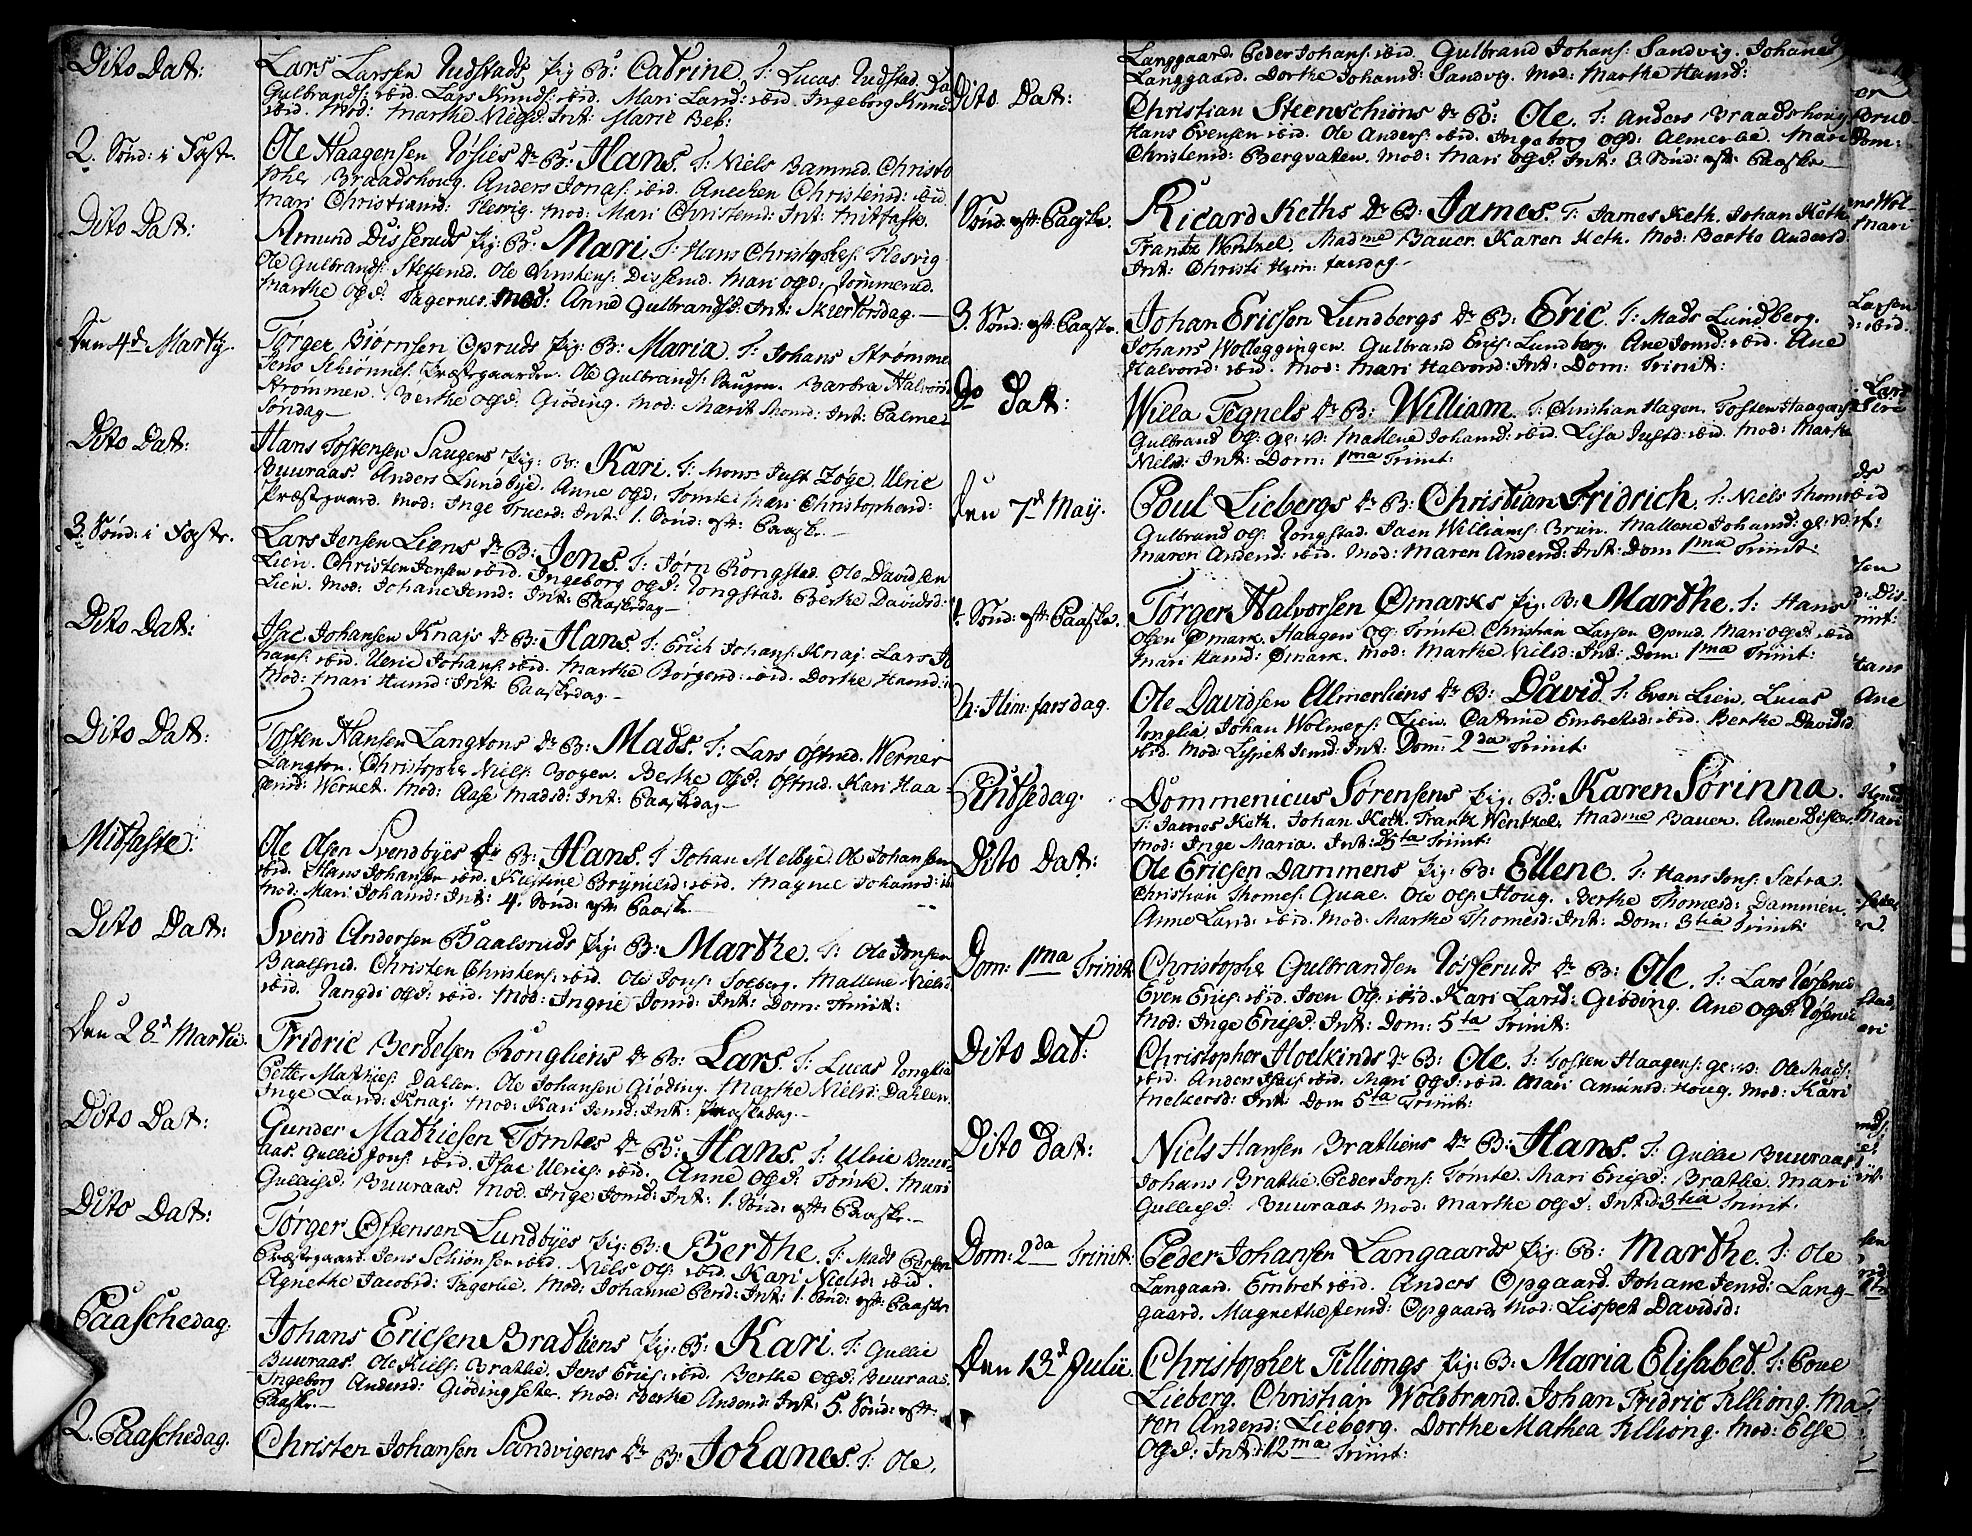 Dito Dat:
Lars Larssen Rudstads Pig B: Catrine. T: Lucas Rudstad.
Gulbrands: ibid. Lars Knuds: ibid. Mari Larsd: ibid. Ingeborg
ibid. Mod: Marthe Nielsd: Int: Mariæ Beb:
2. Sønd: i Faste.
Ole Haagensen Røsies Dr B: Hans. T: Niels Bamrud. Christo
pher Braadshoug. Anders Jonas: ibid. Anechen Christensd: ibid
Mari Christiansd: Flesvig. Mod: Mari Christensd: Int: Mitfaste.
Dito Dat:
Amund Disseruds Pig: B: Mari. T: Hans Christophers: Flesvig
Ole Gulbrands: Steffenrud. Ole Disserud. Mari Ols d: Sommerud.
Marthe Ols d: Fagernes. Mod: Anne Gulbrandsd: Int: Skiertorsdag.
Den 4d Martz.
Tørger Biørnsen Opruds Pig: B: Maria. T: Johans Strømmen
Jens Schiønnes: Præstgaarden. Ole Gulbrands: Saugen. Barbra Halvorsd
Strømmen. Berthe Ols d: Giøding. Mod: Marit Int: Palme
Søndag
Dito Dat:
Hans Tostensen Saugens Pig: B: Kari. T: Mons: Just Ulric
Buuraas. Anders Lundbye. Anne Ols d: Tomte Mari Christophersd:
Præstgaard. Mod: Inge Int: 1. Sønd: eft: Paaske.
3. Sønd: i Faste.
Lars Jensen Liens Dr B: Jens. T: Jørn Rongstad. Ole Davidsen
Lien. Christen Jensen ibid. Ingeborg Ols d: Rongstad. Berthe Davidsd:
Lien. Mod: Johane Jensd: Int: Paaskedag
Dito Dat:
Isac Johansen Knajs Dr B: Hans. T: Erich Johans: Knaj. Lars Jo
hans: ibid. Ulric Johans: ibid. Marthe Børgersd: ibid. Dorthe Hansd:
Mod: Mari Int: Paaskedag
Dito Dat:
Tosten Hansen Langtons Dr B: Mads. T: Lars Ofstrud. Werner
Langton. Christopher Niels: Bogen. Berthe Ols d: Ofstrud. Kari Haa=
gensd: Mod: Aase Madsd: Int: Paaskedag
Mitfaste.
Ole Olsen Svendbyes Pig B: Hans. T Johan Melbye. Ole Johansen
ibid. Hans Johansen ibid. Kirstine ibid. Magnil Johansd:
Mod: Mari Johansd: Int: 4. Sønd: eft: Paask
Dito Dat:
Svend Andersen Baalsruds Pig: B: Marthe. T: Ole Jonsen
Baalsrud. Christen Christens: ibid. Ole Jons: Soeberg. Mallene Nielsd
ibid. Rangdi Ols d: ibid. Mod: Ingrie Jonsd: Int: Dom: Trinit:
Den 28d Martii.
Fridric Bertelsen Rongliens Dr B: Lars. T: Lucas Ronglia
Petter Mathies: Dahlen. Ole Johansen Giøding. Marthe Nielsd: Dahlen.
Inge Larsd: Knaj. Mod: Kari Jensd: Int: Paaskedag.
Dito Dat:
Gunder Mathiesen Tømtes Dr B: Hans. T: Ulric Buur=
aas. Gullie Jons: ibid. Isac Ulrics: ibid. Anne Ols d: Tømte. Mari
Gullies d: Buuraas. Mod. Inge Jonsd: Int: 1. Sønd: eft: Paaske.
Dito Dat:
Tørger Ostensen Lundbyes Pig: B: Berthe. T: Mads
Præstgaard. Jens Schiønsen ibid. Niels Ols: ibid. Kari Nielsd: ibid.
Agnethe Jacobsd: Fagerlie. Mod: Johanne Persd: Int: 1. Sønd: eft: Paaske
Paaschedag.
Johans Ericsen Brathiens Pig: B: Kari. T: Gullie
Buuraas. Ole Kiels: Brathie. Jens Erics: ibid. Berthe Ols d: Buuraas.
Ingeborg Andersd: Giødingseter. Mod: Berthe Andersd: Int: 5. Sønd: eft:
Paaske.
2. Paaschedag.
Christen Johansen Sandvigens Dr B: Johanes. T: Ole
Langgaard. Peder Johans: ibid. Gulbrand Johans: Sandvig. Johane
Langgaard. Dorthe Johansd: Sandvig. Mod: Marthe Hansd:
Dito Dat:
Christian Steenschiøns Dr B: Ole. T: Anders Braadshoug
Hans Evensen ibid. Ole Anders: ibid. Ingeborg Ols d: Almerlie. Mari
Christensd: Bergvatten. Mod: Mari Ols d. Int: 3 Sønd: eft: Paaske
1 Sønd: eft: Paaske.
Ricard Keths Dr B: James. T: James Keth. Johan Keth
Frantz Wentzel. Madme Bauer. Karen Keth. Mod: Berthe Andersd
Int: Christi Him: farsdag
3. Sønd: eft: Paaske.
Johan Ericsen Lundbergs Dr B: Eric. T: Mads Lundberg.
Johans Wolleggingen. Gulbrand Erics: Lundberg. Ane Jonsd: ibid. Ane
Halvorsd: ibid. Mod: Mari Halvorsd: Int: Dom: Trinit:
Do Dat:
Willa Tegnels Dr B: William. T: Christian Hagen. Tosten Haagens:
Gulbrand Ols: Mallene Johansd: ibid. Lisa Justd: ibid. Mod: Marthe
Nielsd: Int: Dom: 1ma Trinit:
Den 7d Maij.
Poul Liebergs Dr B: Christian Fridrich. T: Niels Thoms:
Gulbrand Ols: Rongstad. Jaen Williams: Bruun. Mallene Johansd:
Maren Andersd: ibid. Mod: Maren Andersd: Int: Dom 1ma Trinit:
4. Sønd: eft: Paaske.
Tørger Halvorsen Ømarks Pig: B: Marthe. T: Hans
Olsen Ømark. Haagen Ols: Tømte Christian Larsen Oprud. Mari Ols d: ibid
Mari Hansd: Ømark. Mod: Marthe Nielsd: Int: Dom: 1ma Trinit:
Ch: Him: farsdag.
Ole Davidsen Almerliens Dr B: David. T: Even Lien. Lucas
Ronglia. Johan Wolmers: Lien. Catrine Embretsd: ibid. Berthe Davidsd.
ibid. Mod: Lispet Jensd: Int: Dom: 2da Trinit:
Pintsedag.
Dommenicus Sørensens Pig: B: Karen Sørinna.
T: James Keth. Johan Keth. Frantz Wentzel. Madme Bauer. Anne
Mod: Inge Maria. Int: D5ta Trinit:
Dito Dat:
Ole Ericsen Dammens Pig: B: Ellene. T: Hans Jens: Sætra.
Christian Thomes: Quae. Ole Ols: Houg. Berthe Thomesd: Dammen.
Anne Larsd: ibid. Mod: Marthe Thomesd: Int: Dom: 3tia Trinit:
Dom: 1ma Trinit:
Christopher Gulbrandsen Røsseruds Dr B: Ole. T: Lars Røsserud
Even Erics: ibid. Joen Ols: ibid. Kari Larsd: Giøding. Ane Ols d: Røsserud
Mod: Inge Erics d: Int: Dom: 5ta Trinit:
Dito Dat:
Christopher Hoelkinds Dr B: Ole. T: Tosten Haagens: Ole Mads:
ibid. Anders Isacs: ibid. Mari Ols d: ibid. Mari Amunsd: Houg. Mod: Kari
Melkersd: Int: Dom 5ta Trinit:
Dito Dat:
Niels Hansen Brathiens Dr B: Hans. T: Gullie Buuraas
Johans Brathie. Peder Jons: Tømte. Mari Erics d: Brathe. Mari
Gullies d: Buuraas Mod: Marthe Ols d: Int: D: 3tia Trinit:
Dom: 2da Trinit:
Peder Johansen Langaards Pig: B: Marthe. T: Ole
Langaard. Embret ibid. Anders Opgaard. Johane Jensd: Lang=
gaard. Magnethe Jensd: Opgaard. Mod: Lispet Davidsd:
Den 13d Julii.
Christopher Tilliongs Pig: B: Maria Elisabet. T: Povel
Lieberg. Christian Wolbrand. Johan Fridric Tilliong. Ma=
ren Andersd: Lieberg. Dorthe Mathea Tilliong. Mod: Else
Ols d: Int: D: 12ma Trinit: